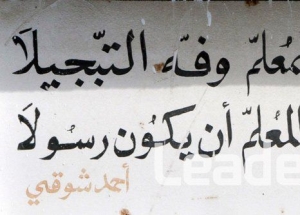 معلّم وفّه التبّجيلا
المعلّم أن يكون رسولا
أحمد شوقي
Leade